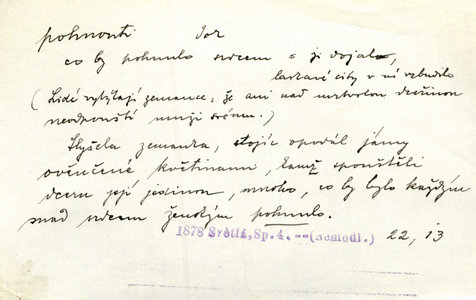 pohnouti dok
co by pohnulo srdcem a ji dojalo,
laskavé city v ní vzbudilo
(Lidé vytýkají zemance, že ani nad mrtvolou dceřinou
neodpouští muži svému.)
Slyšela zemanka, stojíc opodál jámy
ověnčené květinami, kamž spouštěli
dceru její jedinou, mnoho, co by bylo každým
snad srdcem ženským pohnulo.
1878 Světlá, Sp.4. --(Nemodl.) 22, 13